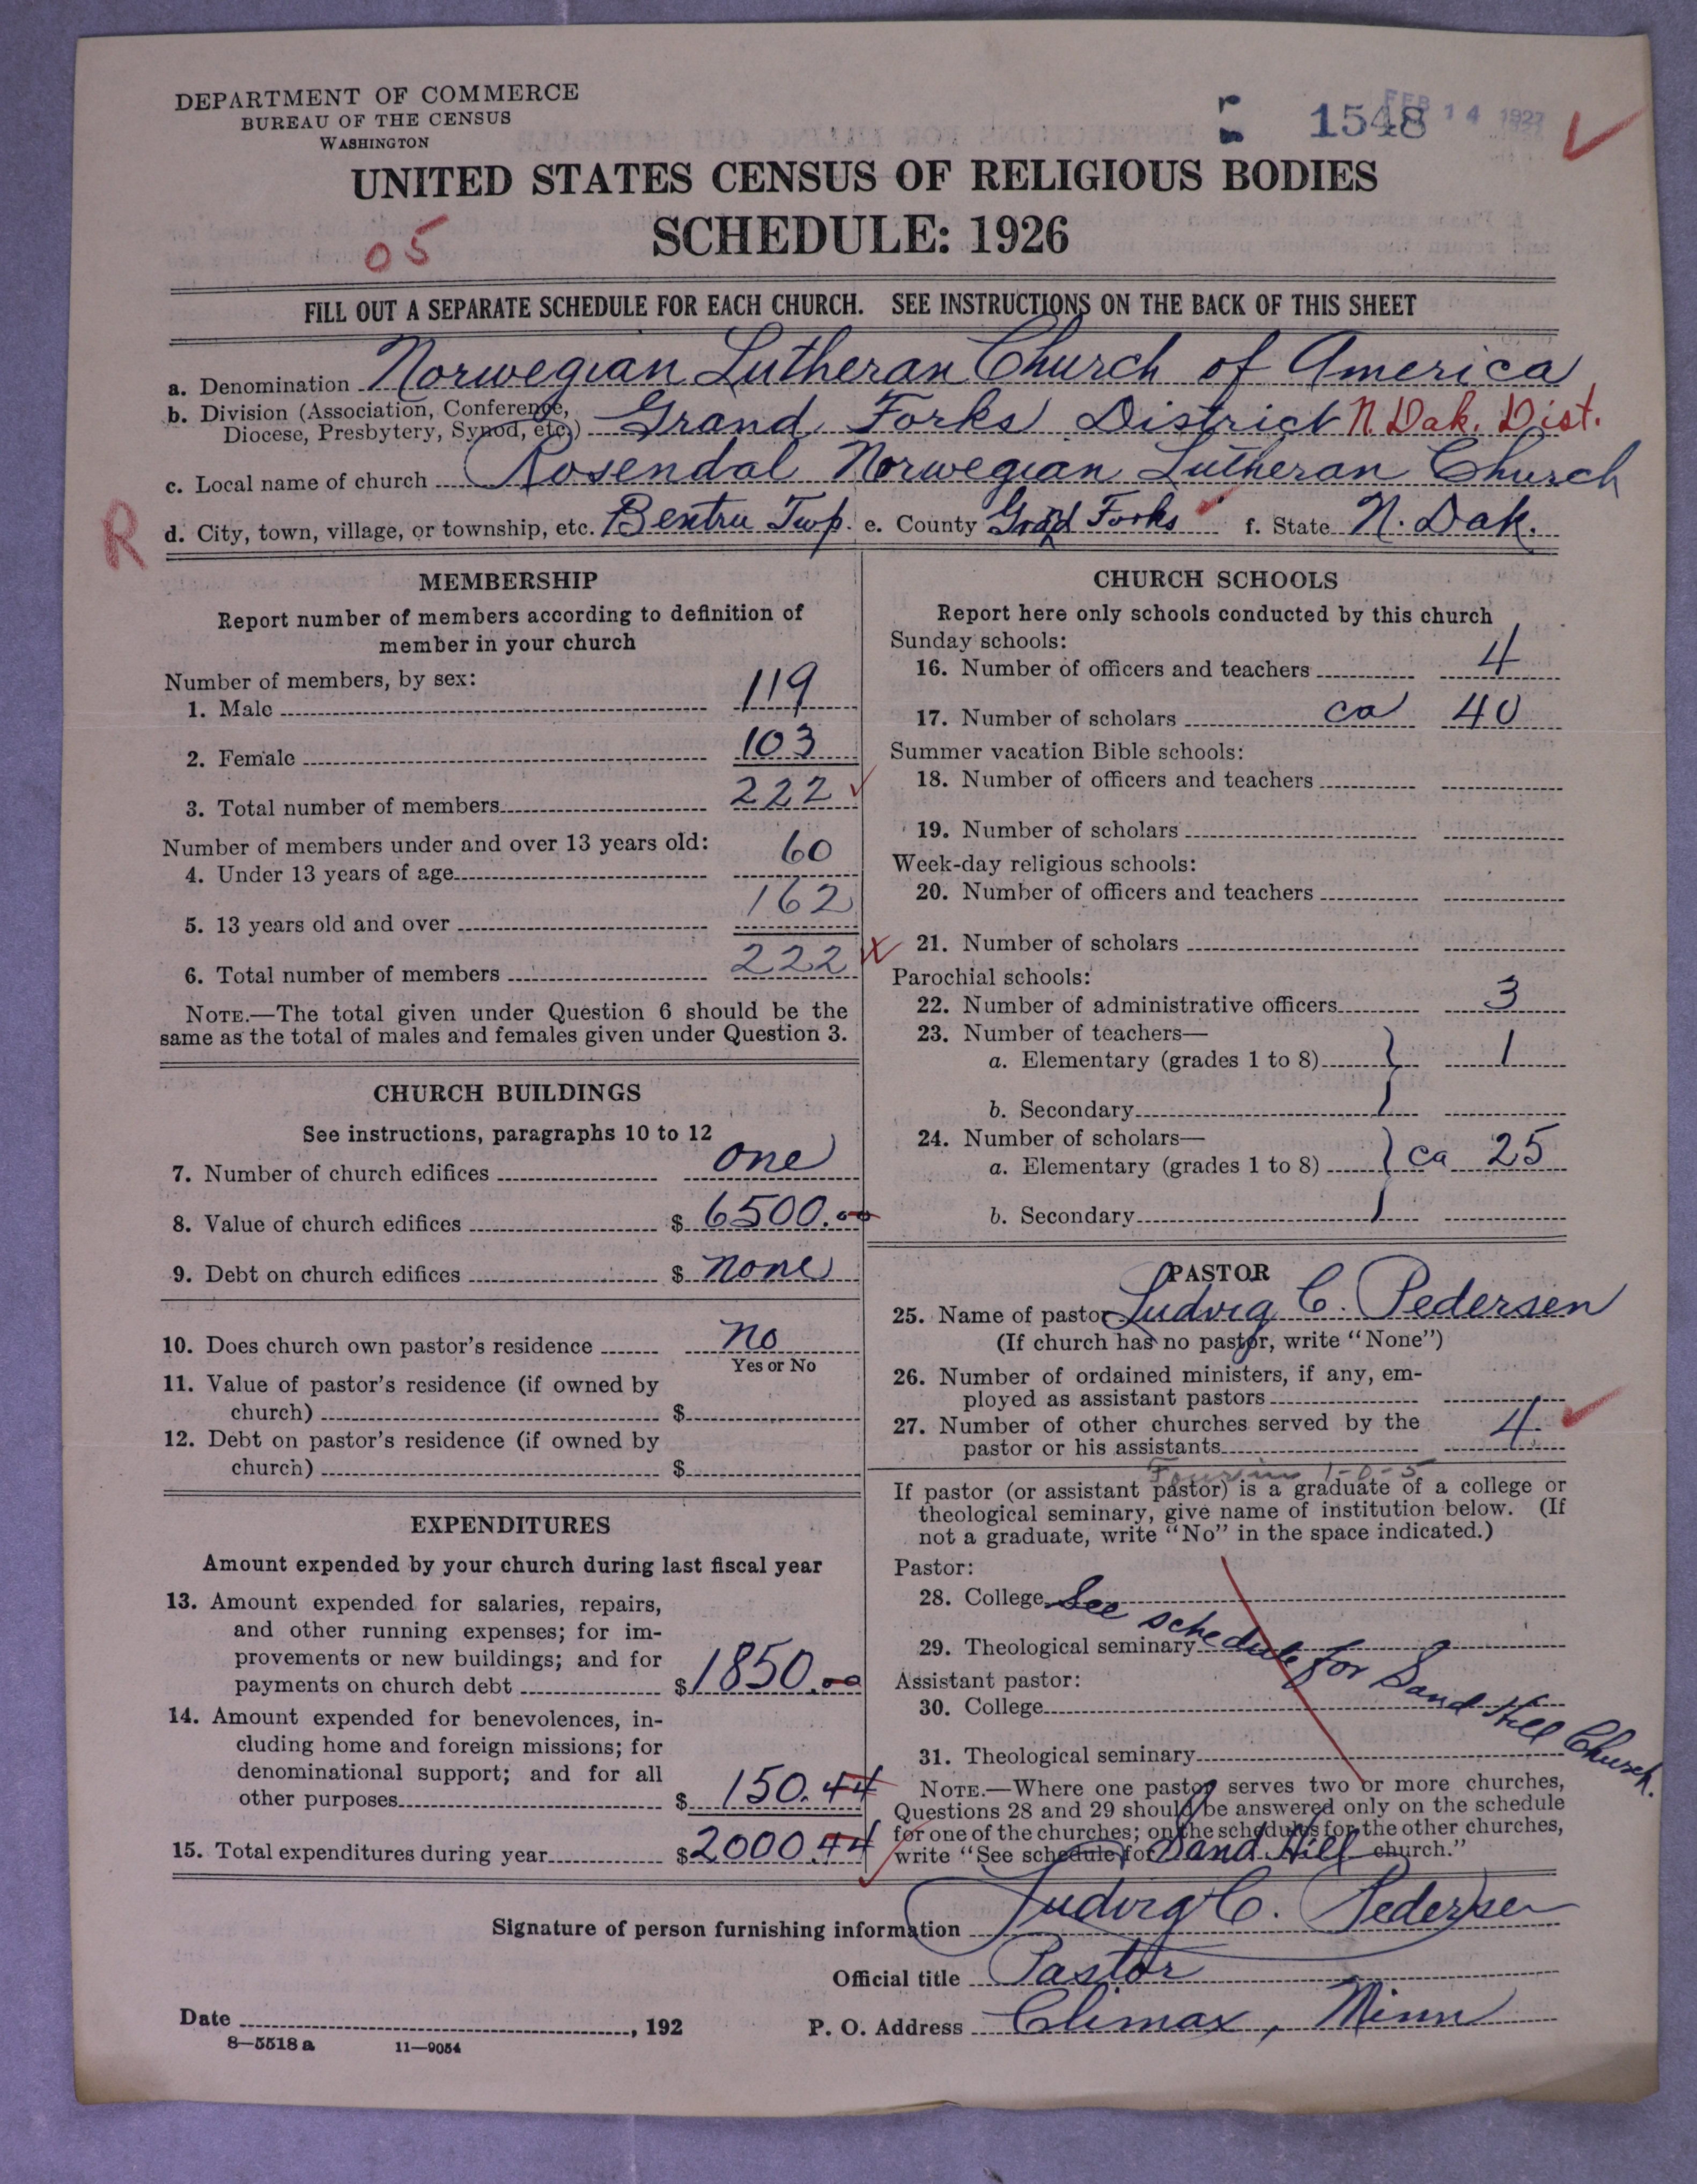 DEPARTMENT OF COMMERCE
BUREAU OF THE CENSUS
WASHINGTON
1548 FEB 14 1927
UNITED STATES CENSUS OF RELIGIOUS BODIES
SCHEDULE: 1926
05
FILL OUT A SEPARATE SCHEDULE FOR EACH CHURCH. SEE INSTRUCTIONS ON THE BACK OF THIS SHEET
a. Denomination Norwegian Lutheran Church of America
b. Division (Association, Conference, Diocese, Presbytery, Synod, etc.) Grand Forks District N. Dak. Dist.
c. Local name of church Rosendal Norwegian Lutheran Church
R d. City, town, village, or township, etc. Bentru Twp. e. County Grand Forks f. State N. Dak.
MEMBERSHIP
Report number of members according to definition of
member in your church
Number of members, by sex:
1. Male 119
2. Female 103
3. Total number of members 222
Number of members under and over 13 years old:
4. Under 13 years of age 60
5. 13 years old and over 162
6. Total number of members 222
NOTE.—The total given under Question 6 should be the
same as the total of males and females given under Question 3.
CHURCH BUILDINGS
See instructions, paragraphs 10 to 12
7. Number of church edifices one
8. Value of church edifices $ 6500.00
9. Debt on church edifices $ none
10. Does church own pastor's residence no
Yes or No
11. Value of pastor's residence (if owned by
church) $
12. Debt on pastor's residence (if owned by
church) $
EXPENDITURES
Amount expended by your church during last fiscal year
13. Amount expended for salaries, repairs,
and other running expenses; for im-
provements or new buildings; and for
payments on church debt $ 1850.00
14. Amount expended for benevolences, in-
cluding home and foreign missions; for
denominational support; and for all
other purposes $ 150.44
15. Total expenditures during year $ 2000.44
CHURCH SCHOOLS
Report here only schools conducted by this church
Sunday schools:
16. Number of officers and teachers 4
17. Number of scholars ca 40
Summer vacation Bible schools:
18. Number of officers and teachers
19. Number of scholars
Week-day religious schools:
20. Number of officers and teachers
21. Number of scholars
Parochial schools:
22. Number of administrative officers 3
23. Number of teachers—
a. Elementary (grades 1 to 8) 1
b. Secondary
24. Number of scholars—
a. Elementary (grades 1 to 8) ca 25
b. Secondary
PASTOR
25. Name of pastor Ludvig C. Pedersen
(If church has no pastor, write "None")
26. Number of ordained ministers, if any, em-
ployed as assistant pastors
27. Number of other churches served by the
pastor or his assistants 4
1-0-5
If pastor (or assistant pastor) is a graduate of a college or
theological seminary, give name of institution below. (If
not a graduate, write "No" in the space indicated.)
Pastor:
28. College
29. Theological seminary
See schedule for Sand Hill Church.
Assistant pastor:
30. College
31. Theological seminary
NOTE.—Where one pastor serves two or more churches,
Questions 28 and 29 should be answered only on the schedule
for one of the churches; on the schedules for the other churches,
write "See schedule for Sand Hill church."
Signature of person furnishing information Ludvig C. Pedersen
Official title Pastor
Date , 192 P. O. Address Climax, Minn
8—5518 a 11—9054